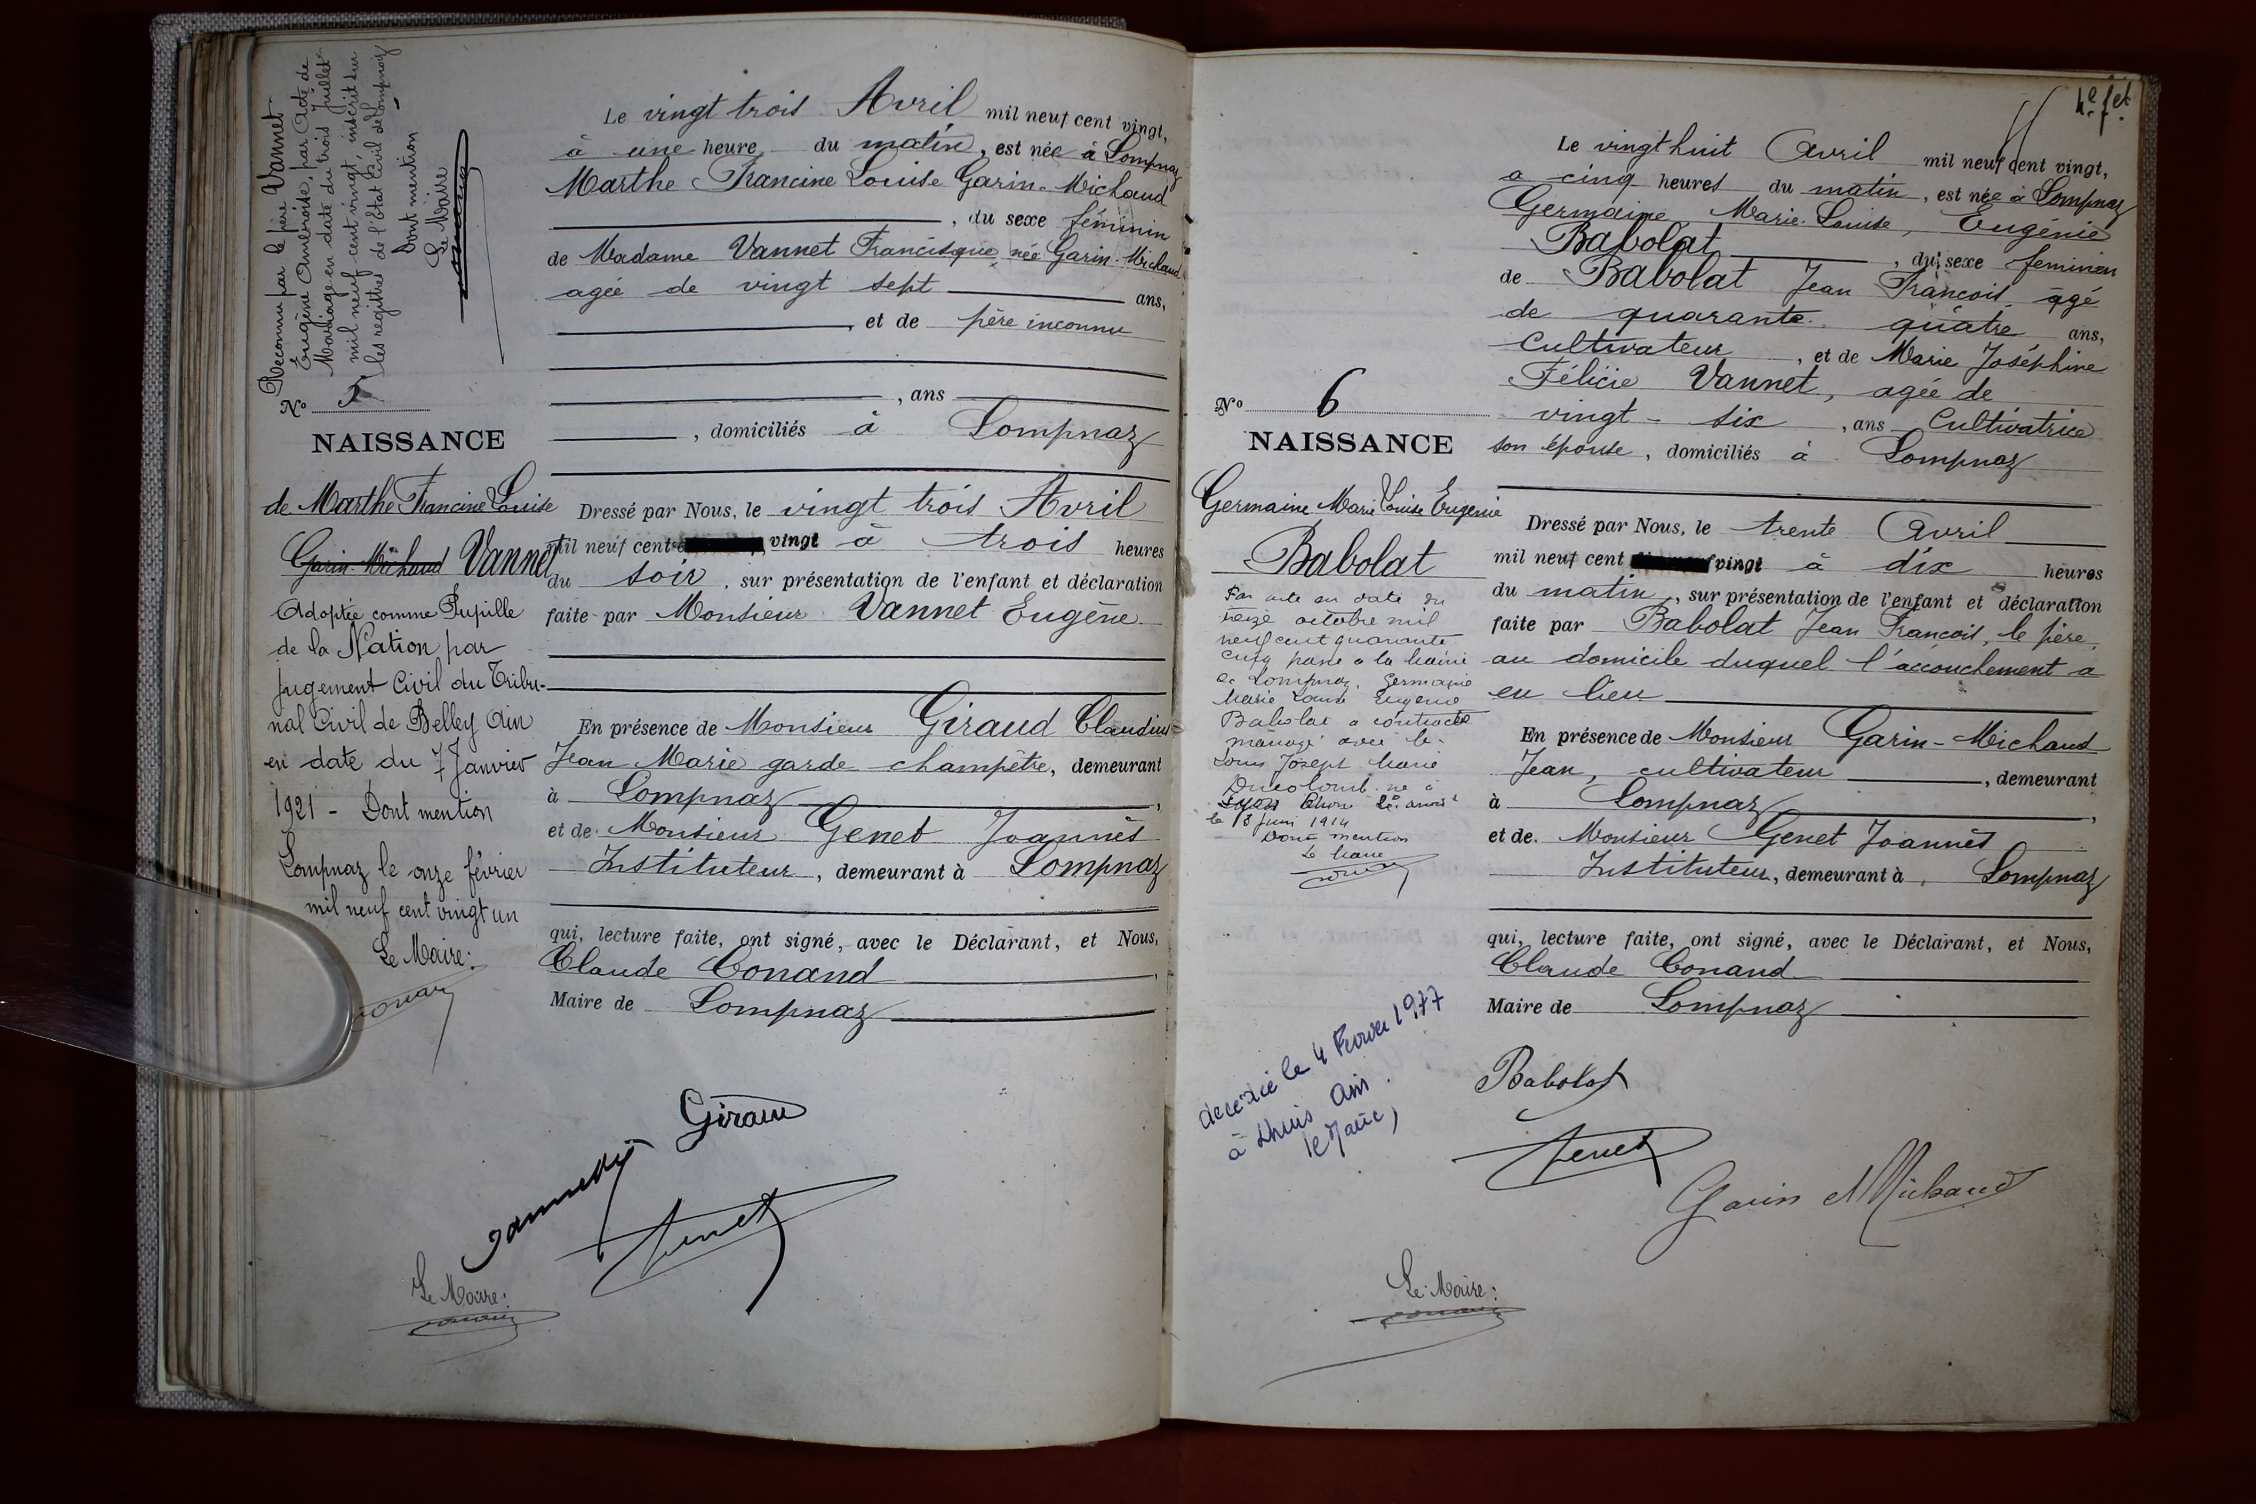 Reconnu par le père Vannet
Eugène Ambroise, par Acte de
Mariage en date du trois Juillet
mil neuf cent vingt, inscrit sur
les registres de l'Etat Civil de Lompnaz
Dont mention
Le Maire
N° 5
NAISSANCE
de Marthe Francine Louise
Garin-Michaud Vannet
Adoptée comme Pupille
de la Nation par
jugement Civil du Tribu-
nal Civil de Belley Ain
en date du 7 Janvier
1921 - Dont mention
Lompnaz le onze février
mil neuf cent vingt un
Le Maire:
Le vingt trois Avril mil neuf cent vingt,
à une heure du matin, est née à Lompnaz
Marthe Francine Louise Garin-Michaud
, du sexe féminin
de Madame Vannet Francisque née Garin-Michaud
agée de vingt sept ans,
, et de père inconnu
, ans
, domiciliés à Lompnaz
Dressé par Nous, le vingt trois Avril
mil neuf cent vingt à trois heures
du soir, sur présentation de l'enfant et déclaration
faite par Monsieur Vannet Eugène
En présence de Monsieur Giraud Claudius
Jean Marie garde champêtre, demeurant
à Lompnaz,
et de Monsieur Genet Joannès
Instituteur, demeurant à Lompnaz
qui, lecture faite, ont signé, avec le Déclarant, et Nous,
Claude Conand,
Maire de Lompnaz
Giraud
Genet
Le Maire:
4e fet.
N° 6
NAISSANCE
Germaine Marie Louise Eugenie
Babolat
Par acte en date du
seize octobre mil
neuf cent quarante
cinq passé a la mairie
de Lompnaz, Germaine
Marie Louise Eugenie
Babolat a contracté
mariage avec le
Louis Joseph Marie
Ducolomb né à
Lyon Rhone 2e arrdt
le 13 juin 1914
Dont mention
Le Maire
décédée le 4 Février 1977
à Lhuis Ain.
le Maire,
Le vingt huit Avril mil neuf cent vingt,
a cinq heures du matin, est née à Lompnaz
Germaine Marie-Louise, Eugénie
Babolat, du sexe feminin
de Babolat Jean François, agé
de quarante quatre ans,
Cultivateur, et de Marie Joséphine
Félicie Vannet, agée de
vingt-six, ans Cultivatrice
son épouse, domiciliés à Lompnaz
Dressé par Nous, le trente Avril
mil neuf cent vingt à dix heures
du matin, sur présentation de l'enfant et déclaration
faite par Babolat Jean François, le père,
au domicile duquel l'accouchement a
eu lieu
En présence de Monsieur Garin-Michaud
Jean, cultivateur, demeurant
à Lompnaz,
et de Monsieur Genet Joannès
Instituteur, demeurant à Lompnaz
qui, lecture faite, ont signé, avec le Déclarant, et Nous,
Claude Conand
Maire de Lompnaz
Babolat
Genet
Garin Michaud
Le Maire: